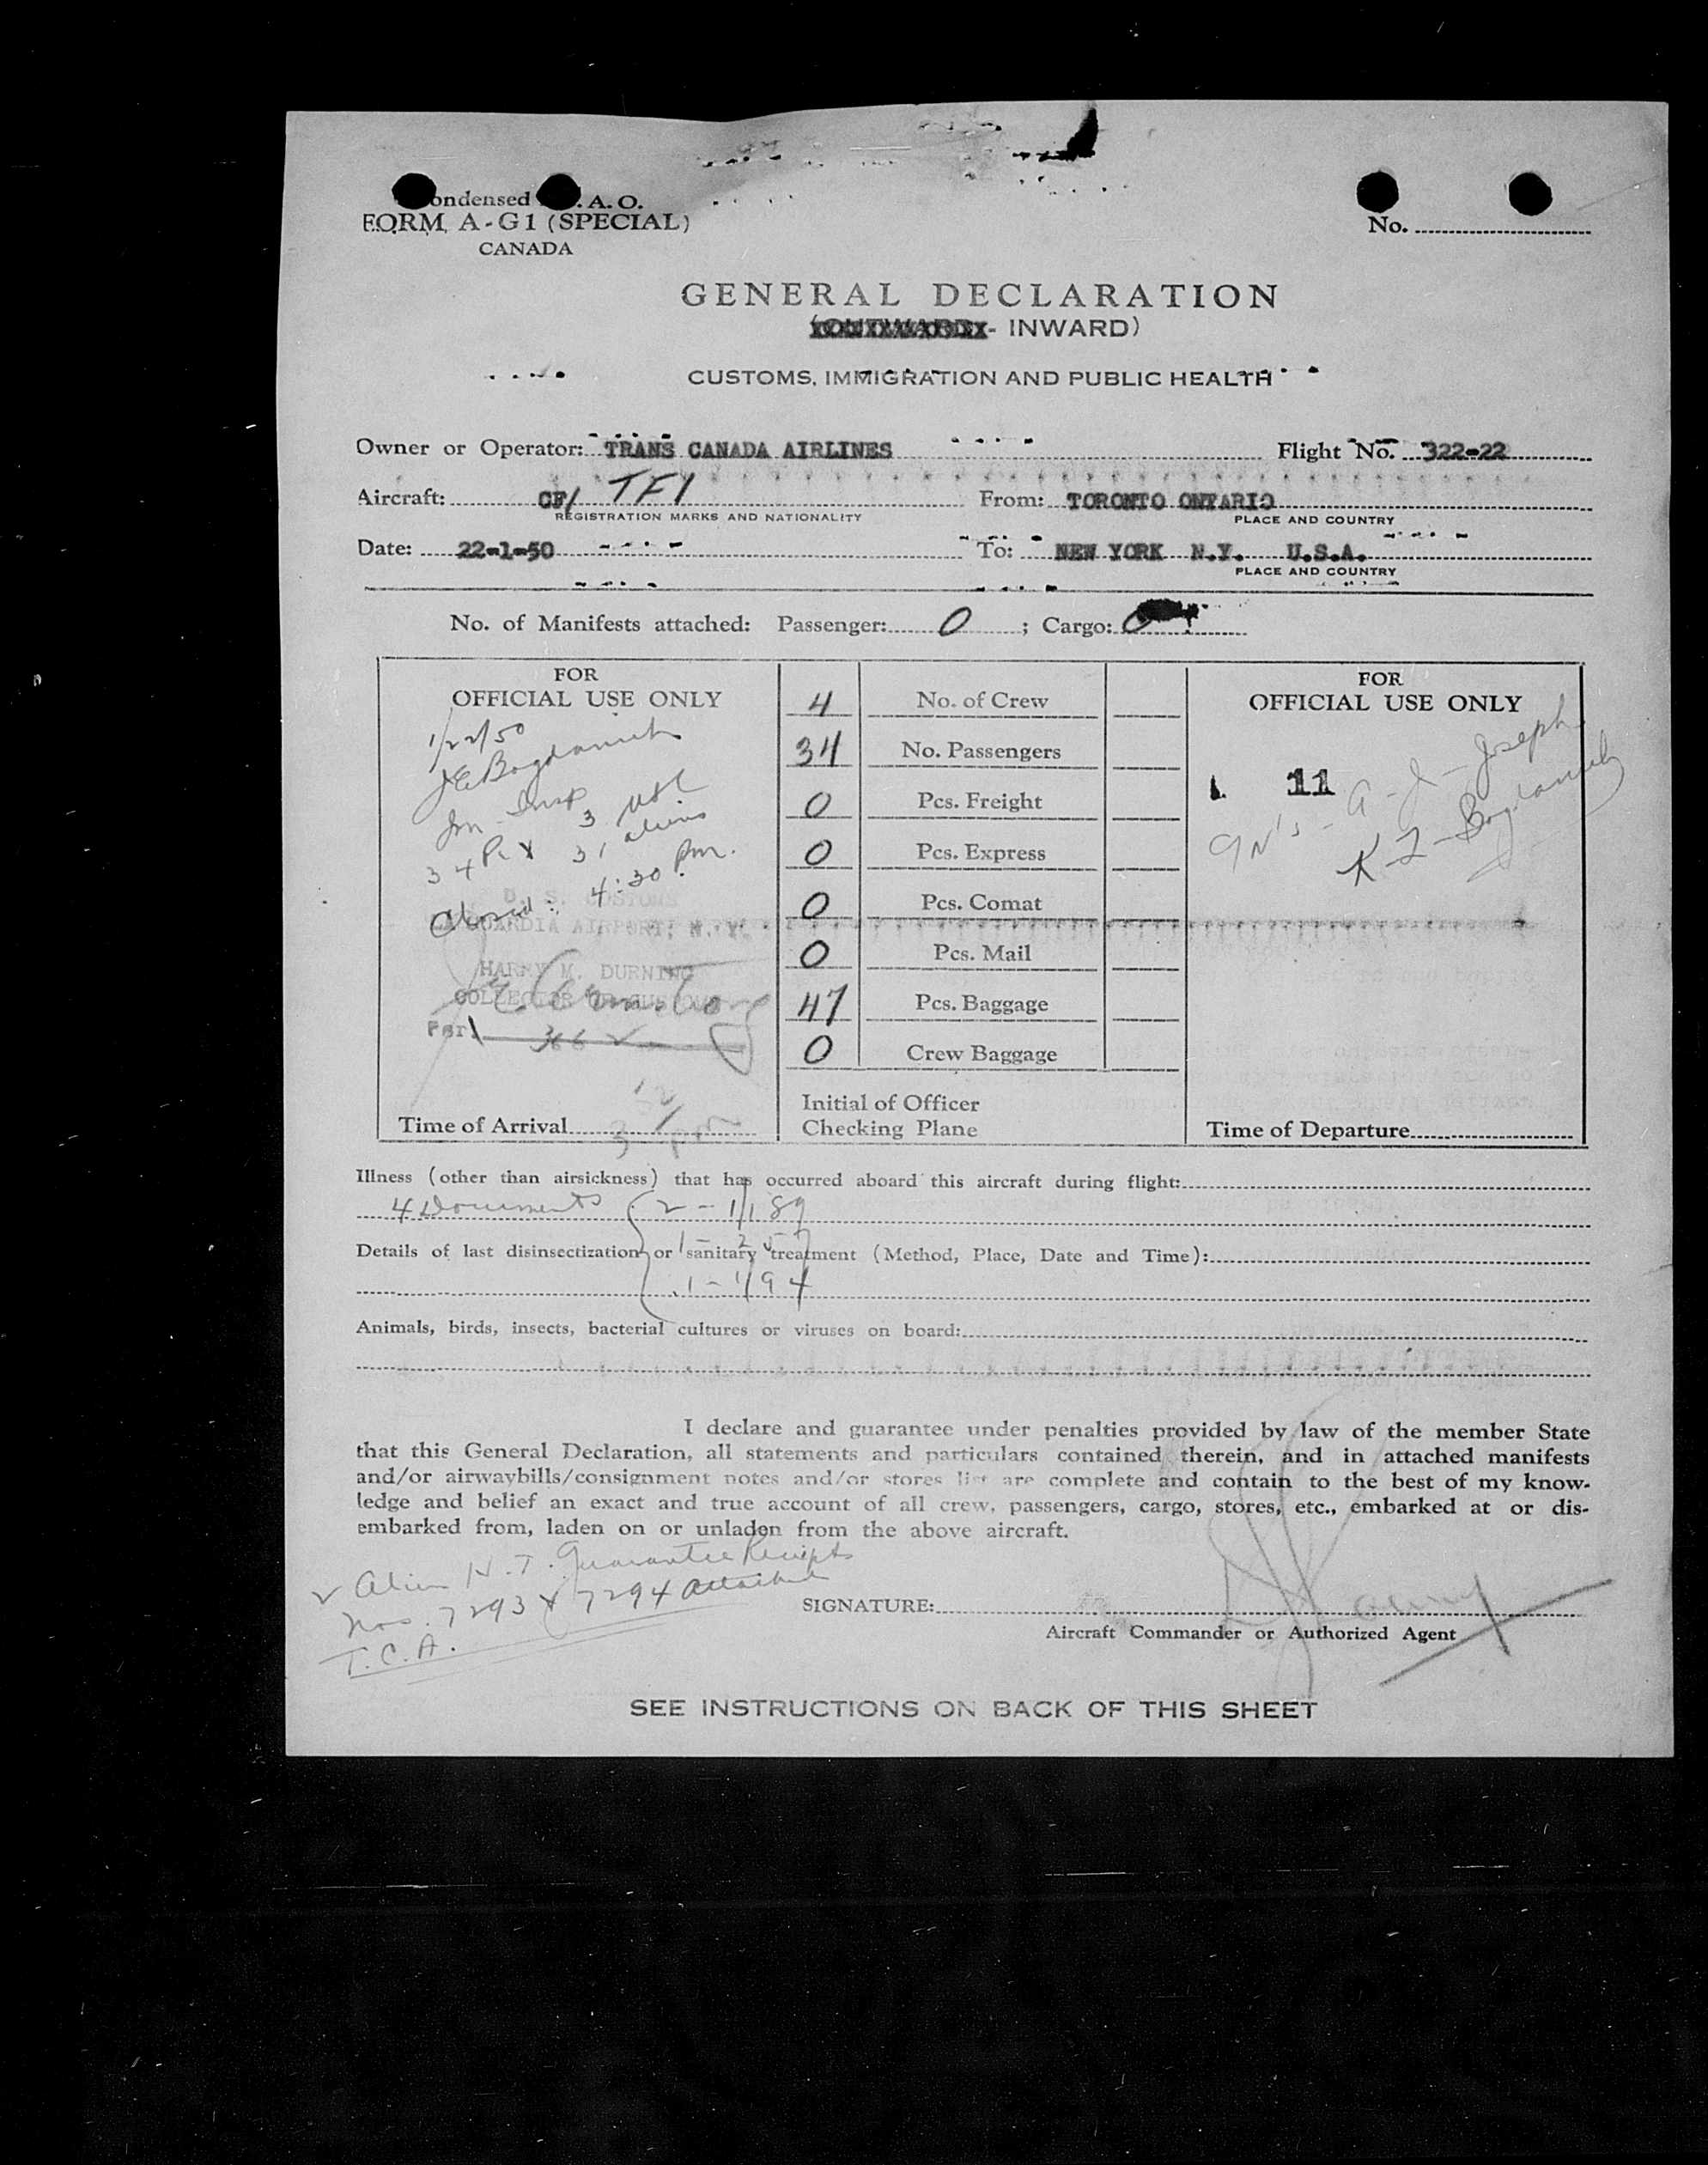 ondensed .A.O.
FORM A-G1 (SPECIAL)
CANADA
No.
GENERAL DECLARATION
- INWARD)
CUSTOMS, IMMIGRATION AND PUBLIC HEALTH
Owner or Operator: TRANS CANADA AIRLINES Flight No. 322-22
Aircraft: CF/ TFI From: TORONTO ONTARIO
REGISTRATION MARKS AND NATIONALITY PLACE AND COUNTRY
Date: 22-1-50 To: NEW YORK N.Y. U.S.A.
PLACE AND COUNTRY
No. of Manifests attached: Passenger: 0 ; Cargo: 0
FOR
OFFICIAL USE ONLY
1/22/50
JE Bogdanich
Im Insp
3
34 31 aliens
Closed: 4:30 Pm.
U. S. CUSTOMS
LA GUARDIA AIRPORT, N.Y.
HARRY M. DURNING
COLLECTOR OF CUSTOMS
Per
Time of Arrival
4 No. of Crew
34 No. Passengers
0 Pcs. Freight
0 Pcs. Express
0 Pcs. Comat
0 Pcs. Mail
47 Pcs. Baggage
0 Crew Baggage
Initial of Officer
Checking Plane
FOR
OFFICIAL USE ONLY
11
Joseph
Time of Departure
Illness (other than airsickness) that has occurred aboard this aircraft during flight:
4 Documents 2 - 1/189
Details of last disinsectization or sanitary treatment (Method, Place, Date and Time):
1 - 1/94
Animals, birds, insects, bacterial cultures or viruses on board:
I declare and guarantee under penalties provided by law of the member State
that this General Declaration, all statements and particulars contained therein, and in attached manifests
and/or airwaybills/consignment notes and/or stores list are complete and contain to the best of my know-
ledge and belief an exact and true account of all crew, passengers, cargo, stores, etc., embarked at or dis-
embarked from, laden on or unladen from the above aircraft.
2 Alien H.T. Guarantee Receipts
Nos. 7293 & 7294 attached
T.C.A.
SIGNATURE:
Aircraft Commander or Authorized Agent
SEE INSTRUCTIONS ON BACK OF THIS SHEET